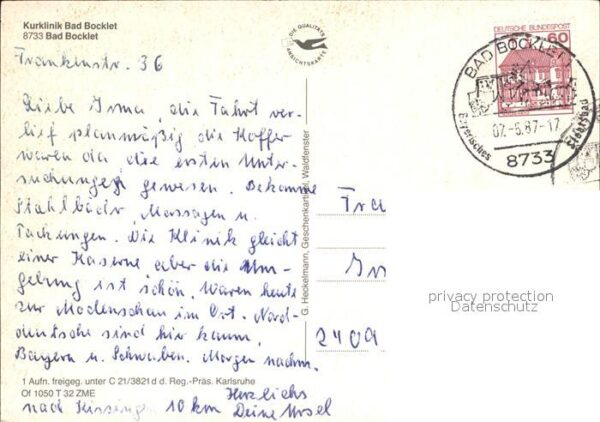 Kurklinik Bad Bocklet
8733 Bad Bocklet
Frankenstr. 36
DIE QUALITÄTS
ANSICHTSKARTE
DEUTSCHE BUNDESPOST
60
BAD BOCKLET
02.-5.87-17
Bayerisches
Staatsbad
8733
Liebe Irma, die Fahrt ver-
lief planmäßig die Koffer
waren da, die ersten Unter-
suchungen gewesen. Bekomme
Stahlbäder, Massagen u.
Packungen. Die Klinik gleicht
einer Kaserne, aber die Um-
gebung ist schön. Waren heute
zur Modenschau im Ort. Nord-
deutsche sind hier kaum,
Bayern u. Schwaben. Morgen nachm.
nach Kissingen 10 km
Herzlichst
Deine Ursel
G. Heckelmann, Geschenkartikel, Waldfenster
Fra
Ir
2409
privacy protection
Datenschutz
1 Aufn. freigeg. unter C 21/3821 d d. Reg.-Präs. Karlsruhe
Of 1050 T 32 ZME